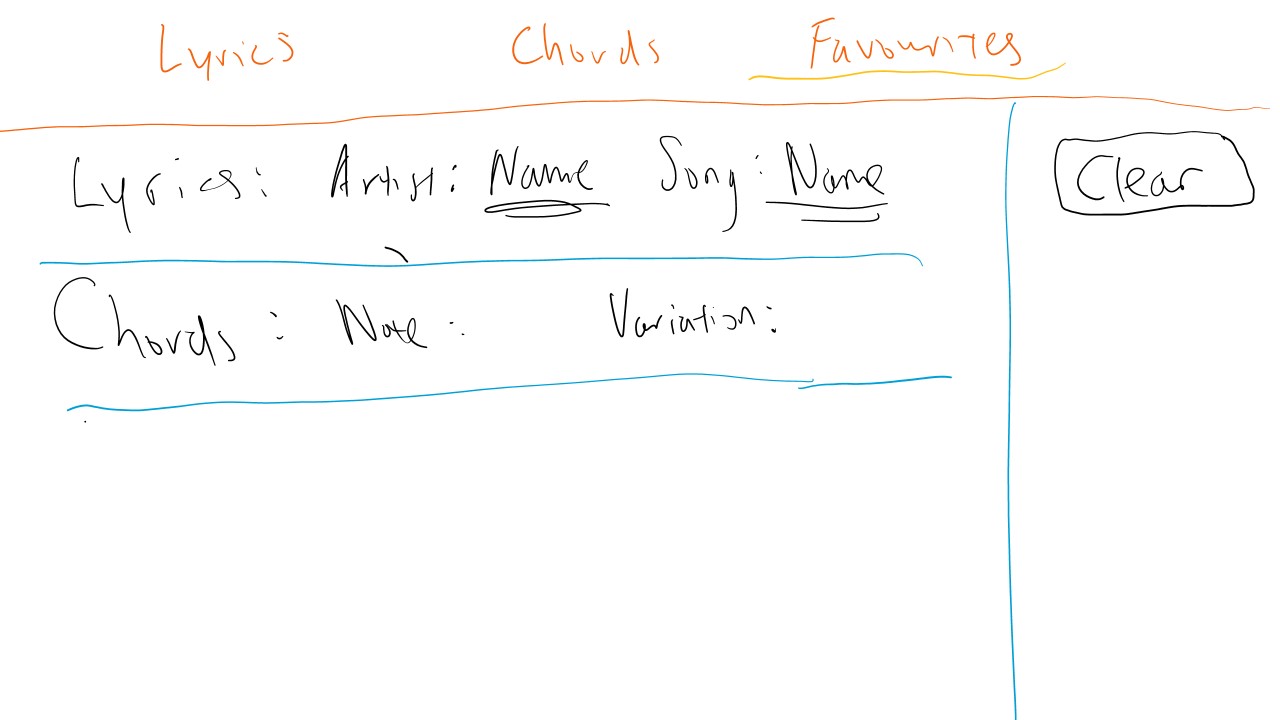 Lyrics Chords Favourites
Lyrics: Artist: Name Song: Name
Clear
Chords: Note: Variation: